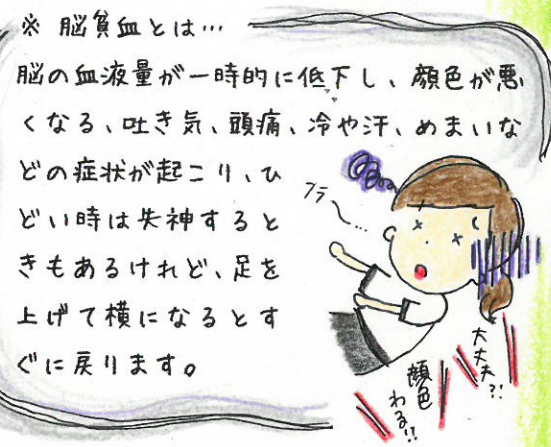 ※ 脳貧血とは…
脳の血液量が一時的に低下し、顔色が悪
くなる、吐き気、頭痛、冷や汗、めまいな
どの症状が起こり、ひ
どい時は失神すると
きもあるけれど、足を
上げて横になるとす
ぐに戻ります。
フラ…
大丈夫?!
顔色
わる!!